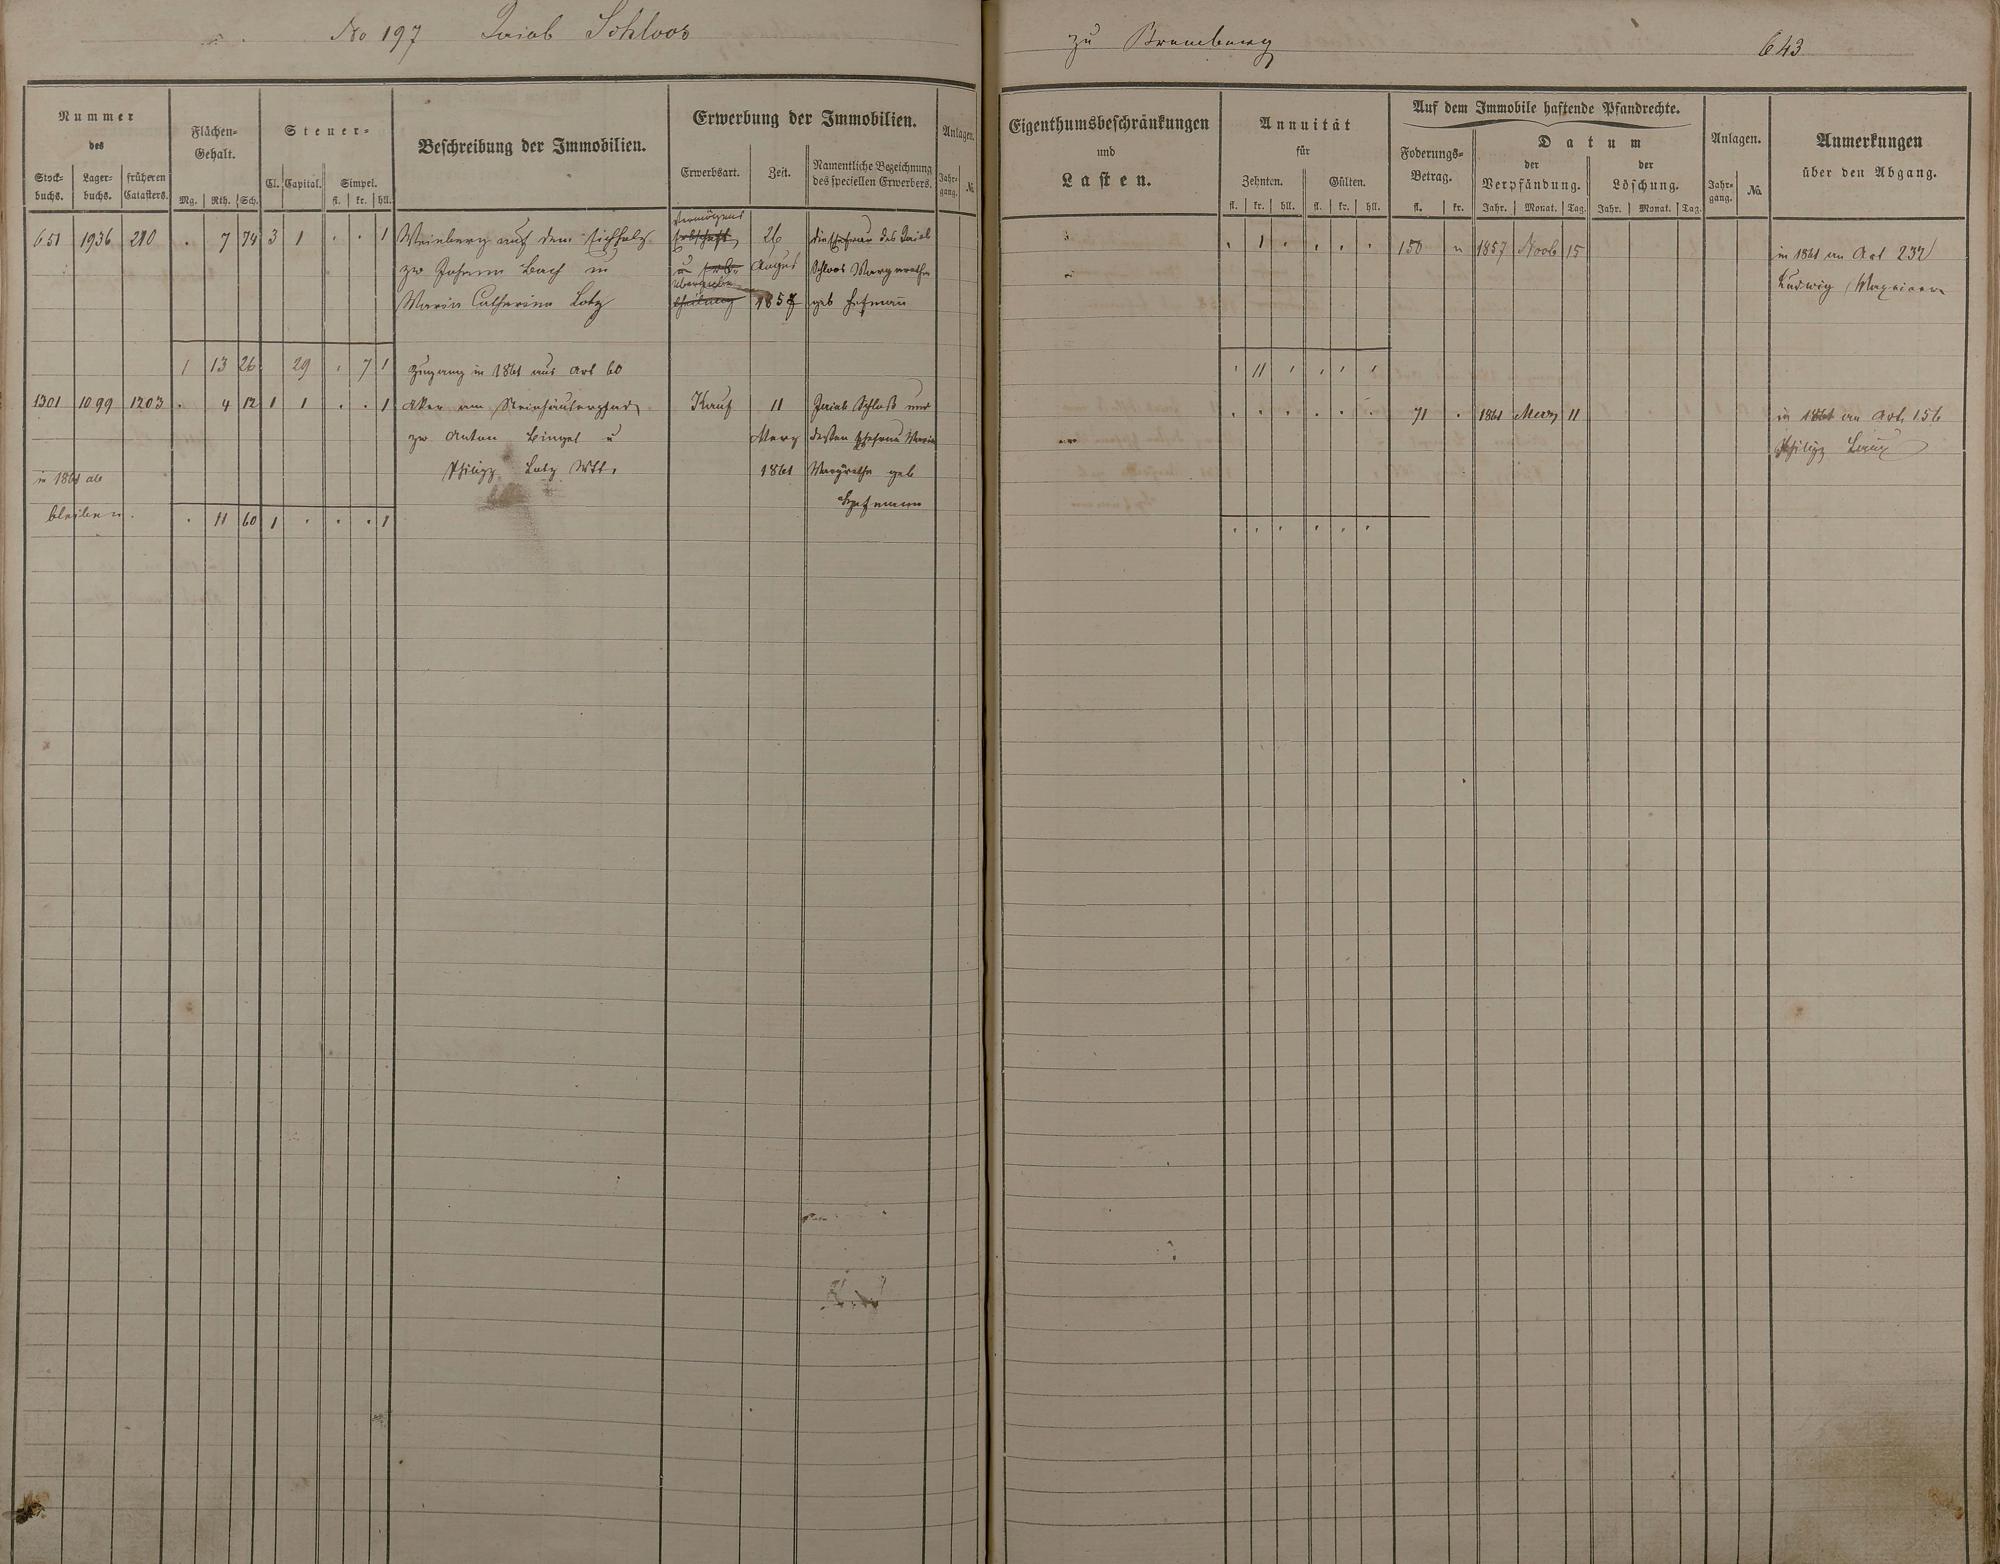 No 197 Jacob Schloos
zu Bremberg 643
Nummer des
Flächen-Gehalt.
Steuer-
Beschreibung der Immobilien.
Erwerbung der Immobilien.
Anlagen.
Eigenthumsbeschränkungen und Lasten.
Annuität für
Auf dem Immobile haftende Pfandrechte.
Anlagen.
Anmerkungen über den Abgang.
Stock-buchs. Lager-buchs. früheren Catasters.
Mg. Rth. Sch.
Cl. Capital. Simpel. fl. kr. hll.
Erwerbsart. Zeit. Namentliche Bezeichnung des speciellen Erwerbers.
Jahr-gang. №
Zehnten. fl. kr. hll. Gülten. fl. kr. hll.
Foderungs-Betrag. fl. kr.
Datum der Verpfändung. Jahr. Monat. Tag. der Löschung. Jahr. Monat. Tag.
Jahr-gang. No.
651 1936 210 . 7 74 3 1 . . 1 Weinberg auf dem Eichholz Vermögens Erbschaft 26 die Ehefrau des Jacob . 1 . . . . 150 " 1857 Novb 15 in 1861 an Art 232
zw Johann Bach u u August Schloos Margarethe Ludwig
Maria Catharina Lotz Übergabe theilung 1857 geb Hofmann
1 13 26 29 . 7 1 Zugang in 1861 aus Art 60 . 11 . . . .
1301 1099 1203 . 4 12 1 1 . . 1 Aker am Kauf 11 Jacob Schloß und . . . . . . 71 . 1861 Merz 11 in 1861 an Art. 156
zw Anton Bingel u Merz dessen Ehefrau Maria Philipp
Philipp Lotz Wtt. 1861 Margrethe geb
in 1861 ab
Hofmann
bleiben. . 11 60 1 . . . 1 . . . . . .